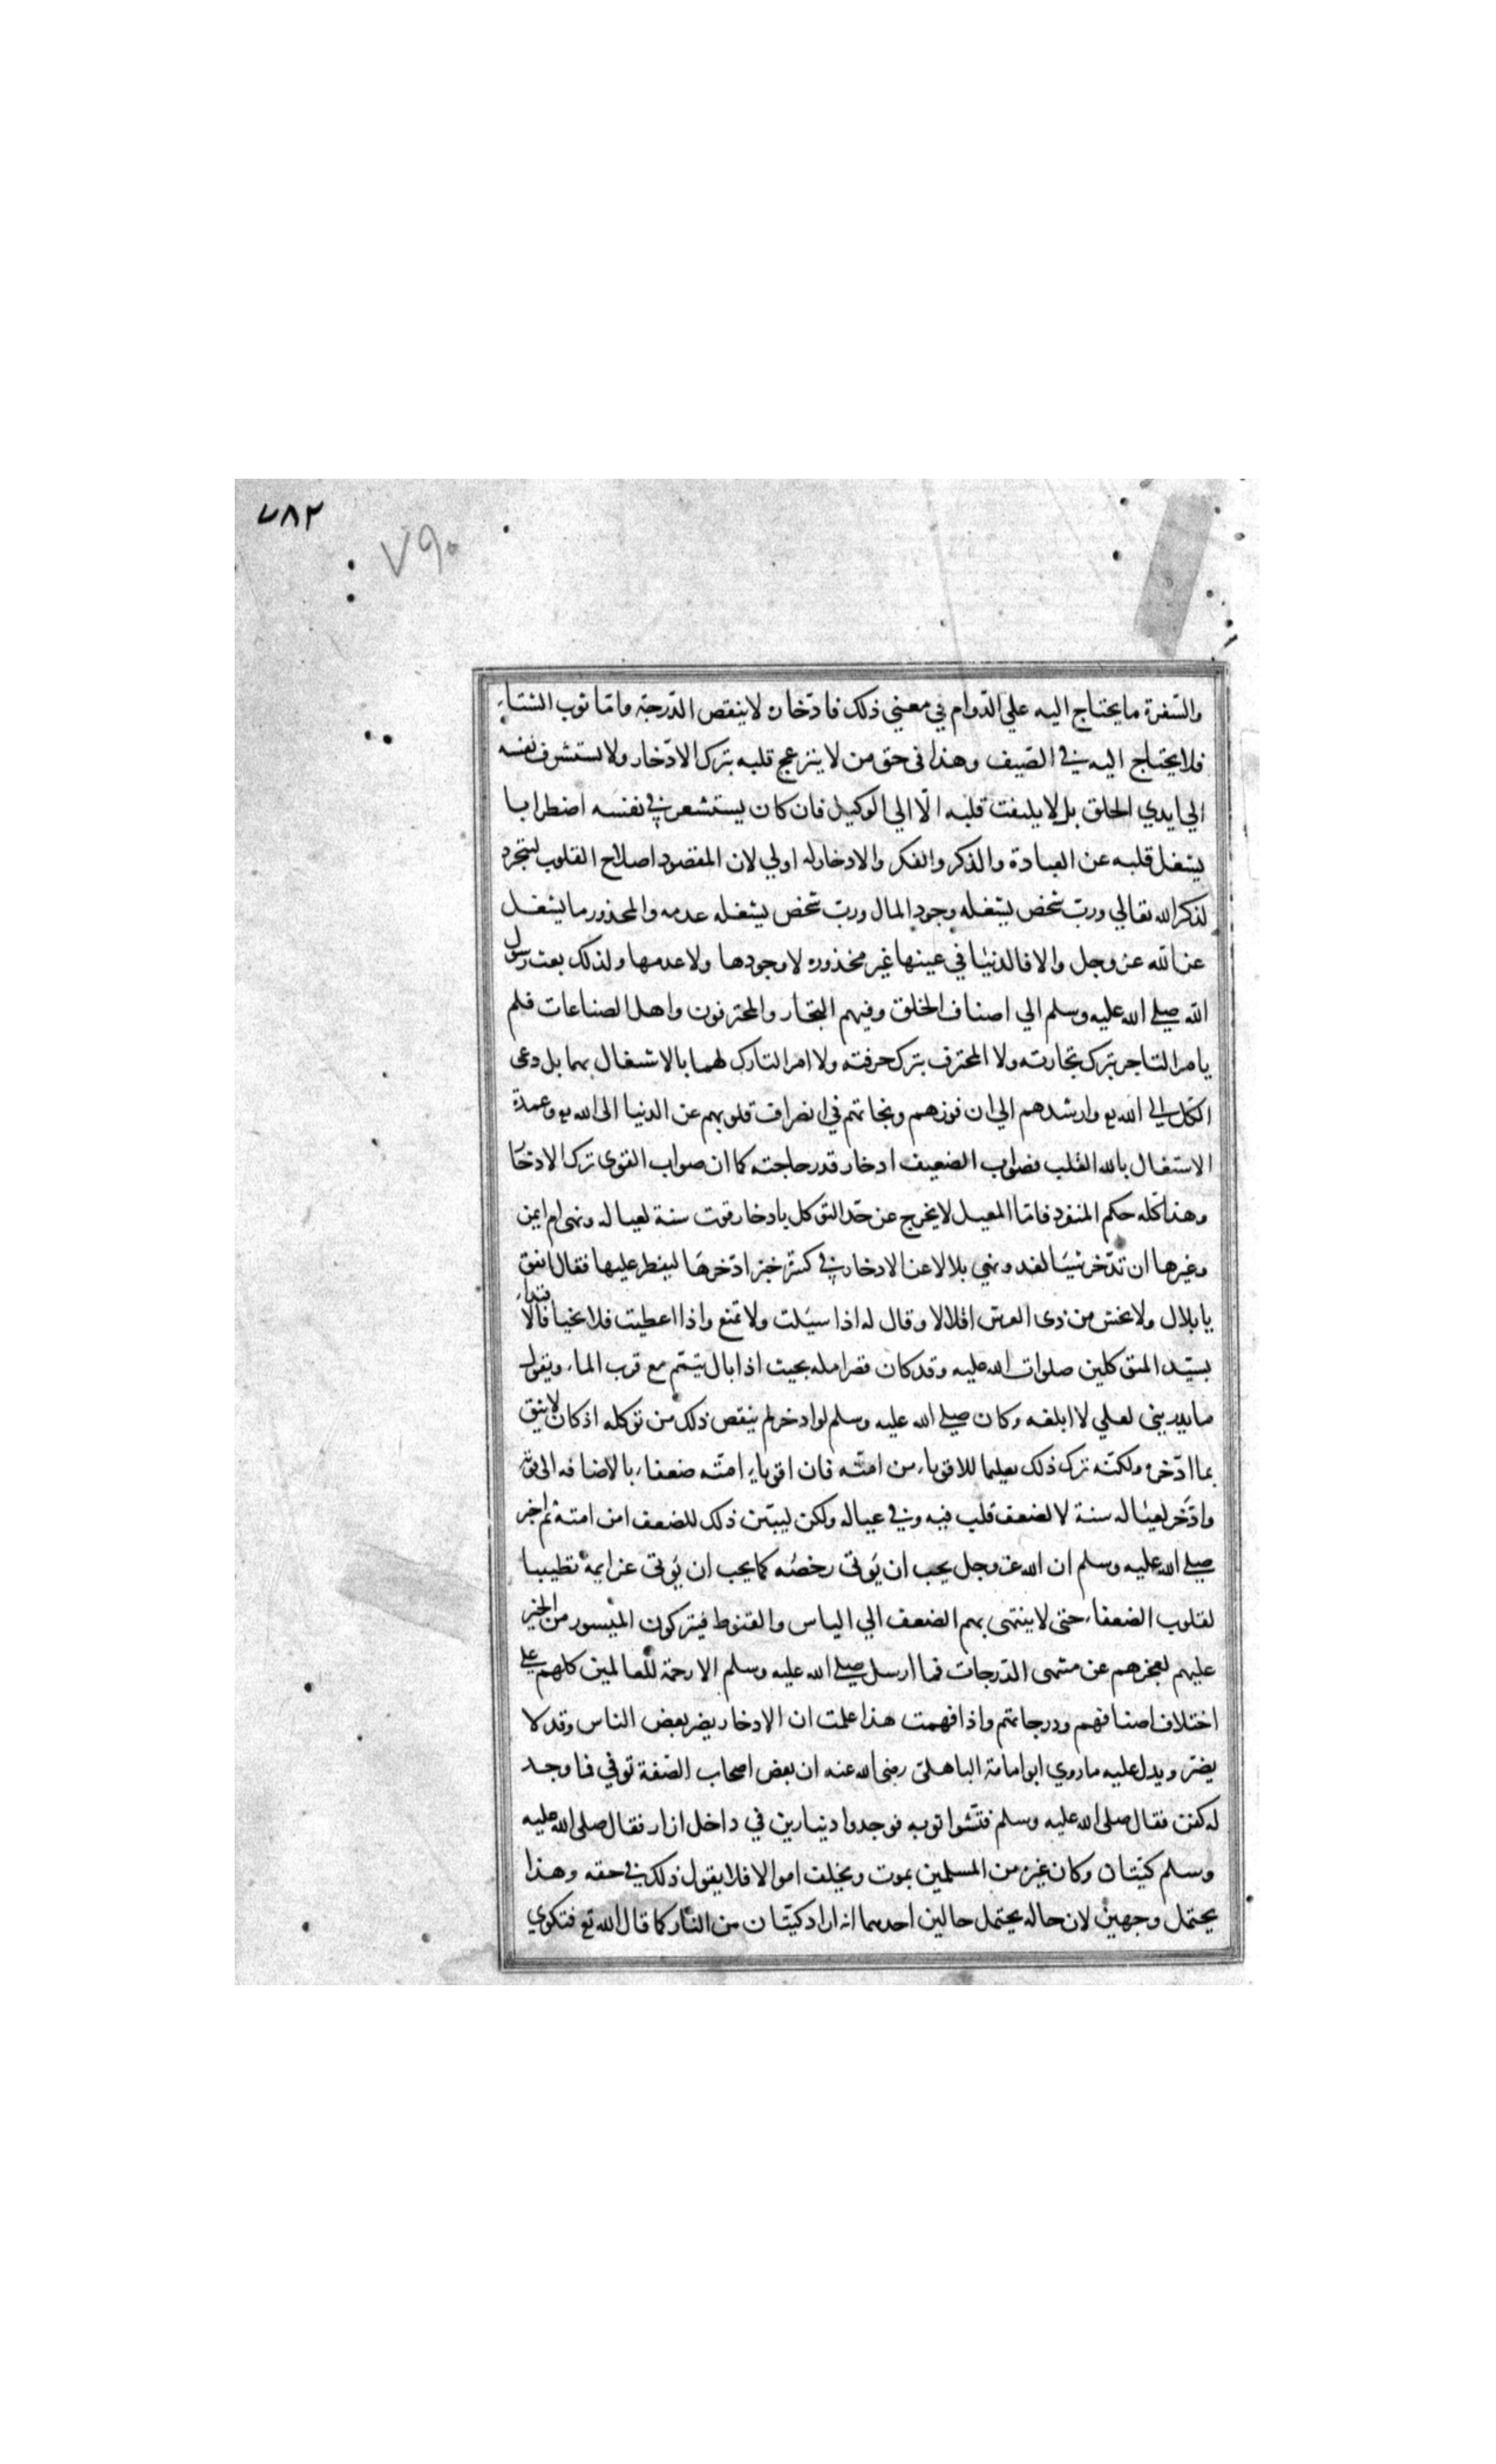 ٧٨٢
٧٩٠
والسفرة ما يحتاج اليه علي الدّوام في معني ذلك فادّخاره لا ينقص الدّرجة وامّا ثوب الشتاء
فلا يحتاج اليه في الصّيف وهذا في حق من لا ينزعج قلبه بترك الادّخار ولا تستشرف نفسه
الي ايدي الخلق بل لا يلتفت قلبه الّا الي الوكيل فان كان يستشعر في نفسه اضطرابا
يشغل قلبه عن العبادة والذكر والفكر والادخار له اولي لان المقصود اصلاح القلوب لتتجرد
لذكر الله تعالي وربّ شخص يشغله وجود المال وربّ شخص يشغله عدمه والمحذور ما يشغل
عن الله عز وجل والا فالدنيا في عينها غير محذوره لا وجودها ولا عدمها ولذلك بعث رسول
الله صلى الله عليه وسلم الي اصناف الخلق وفيهم التجار والمحترفون واهل الصناعات فلم
يامر التاجر بترك تجارته ولا المحترف بترك حرفته ولا امر التارك لهما بالاشتغال بهما بل دعى
الكل الى الله تع وارشدهم الي ان فوزهم ونجاتهم في انصراف قلوبهم عن الدنيا الى الله تع وعمدة
الاشتغال بالله القلب فصواب الضعيف ادخار قدر حاجته كما ان صواب القوى ترك الادخا
وهذا كله حكم المنفرد فامّا المعيل لا يخرج عن حدّ التوكل بادخار قوت سنة لعياله ونهى ام ايمن
وغيرها ان تدّخر شيئا لغد ونهي بلالا عن الادخار في كسرة خبز ادّخرها ليفطر عليها فقال انفق
يا بلال ولا تخش من ذى العرش اقلالا وقال له اذا سئلت ولا تمنع واذا اعطيت فلا تخبأ فالا
قتداء
بسيّد المتوكلين صلوات الله عليه وقد كان قصر امله بحيث اذا بال تيمّم مع قرب الماء ويقول
ما يدريني لعلي لا ابلغه وكان صلى الله عليه وسلم لو ادخر لم ينقص ذلك من توكله اذ كان لا يثق
بما ادّخره ولكنّه ترك ذلك تعليما للاقوياء من امته فان اقوياء امتّه ضعفاء بالاضافه الى قوّته
وادّخر لعياله سنة لا لضعف قلب فيه وفي عياله ولكن ليبيّن ذلك للضعفا من امته ثم اخبر
صلى الله عليه وسلم ان الله عز وجل يحب ان يُوتى رخصه كما يحب ان يُوتى عزايمه تطييبا
لقلوب الضعفاء حتى لا ينتهى بهم الضعف الي الياس والقنوط فيتركون الميسور من الخير
عليهم لعجزهم عن منتهى الدّرجات فما ارسل صلى الله عليه وسلم الا رحمة للعالمين كلهم على
اختلاف اصنافهم ودرجاتهم واذا فهمت هذا علمت ان الادخار يضر بعض الناس وقد لا
يضرّ ويدل عليه ما روي ابو امامة الباهلى رضى الله عنه ان بعض اصحاب الصّفة توفي فما وجد
له كفن فقال صلى الله عليه وسلم فتّشوا ثوبه فوجدوا دينارين في داخل ازار فقال صلى الله عليه
وسلم كيّتان وكان غيره من المسلمين يموت ويخلف اموالا فلا يقول ذلك في حقه وهذا
يحتمل وجهين لان حاله يحتمل حالين احدهما انه اراد كيّتان من النار كما قال الله تع فتكوي